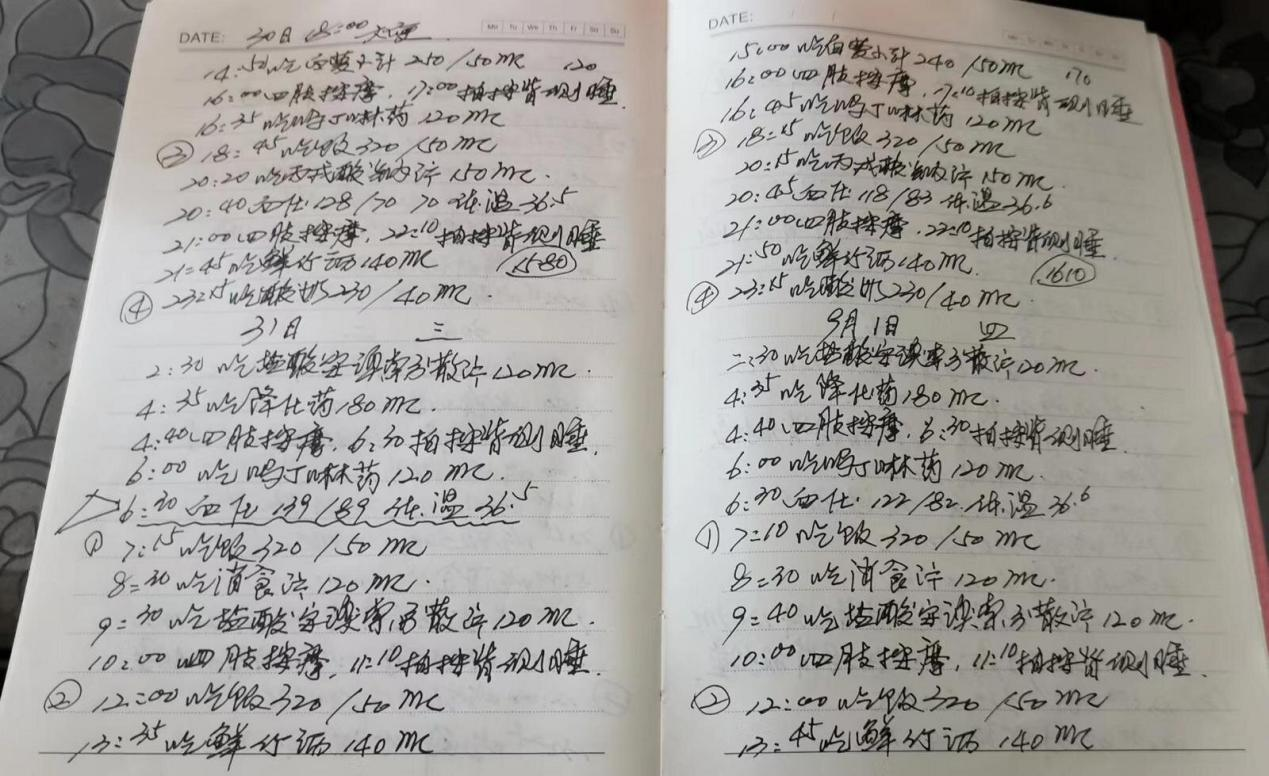 DATE: 30日 18:00大便
Mo Tu We Th Fr Sa Su
14:50吃白萝卜汁250/50mc 120
16:00四肢按摩,17:00拍按背侧睡
16:35吃吗丁啉药120mc
③18:45吃饭320/50mc
20:20吃丙戊酸钠片150mc.
20:40血压128/70 70 体温36.5
21:00四肢按摩,22:10拍按背侧睡
21:45吃鲜竹沥140mc 1580
④23:15吃酸奶230/40mc
31日 三
2:30吃盐酸安溴索分散片120mc.
4:35吃降化药180mc.
4:40四肢按摩,6:30拍按背侧睡.
6:00吃吗丁啉药120mc.
6:30血压139/89体温36.5
①7:15吃饭320/50mc
8:30吃消食片120mc.
9:30吃盐酸安溴索分散片120mc.
10:00四肢按摩,11:10拍按背侧睡.
②12:00吃饭320/50mc
13:35吃鲜竹沥140mc
DATE:
15:00吃白萝卜汁240/50mc 170
16:00四肢按摩,17:10拍按背侧睡
16:45吃吗丁啉药120mc
③18:15吃饭320/50mc
20:15吃丙戊酸钠片150mc.
20:45血压118/83体温36.6
21:00四肢按摩,22:10拍按背侧睡.
21:50吃鲜竹沥140mc. 1610
④23:15吃酸奶230/40mc
9月1日 四
二:30吃盐酸安溴索分散片120mc.
4:35吃降化药180mc.
4:40四肢按摩,6:30拍按背侧睡.
6:00吃吗丁啉药120mc.
6:30血压122/82体温36.6
①7:10吃饭320/50mc
8:30吃消食片120mc.
9:40吃盐酸安溴索分散片120mc.
10:00四肢按摩,11:10拍按背侧睡.
②12:00吃饭320/50mc
13:45吃鲜竹沥140mc